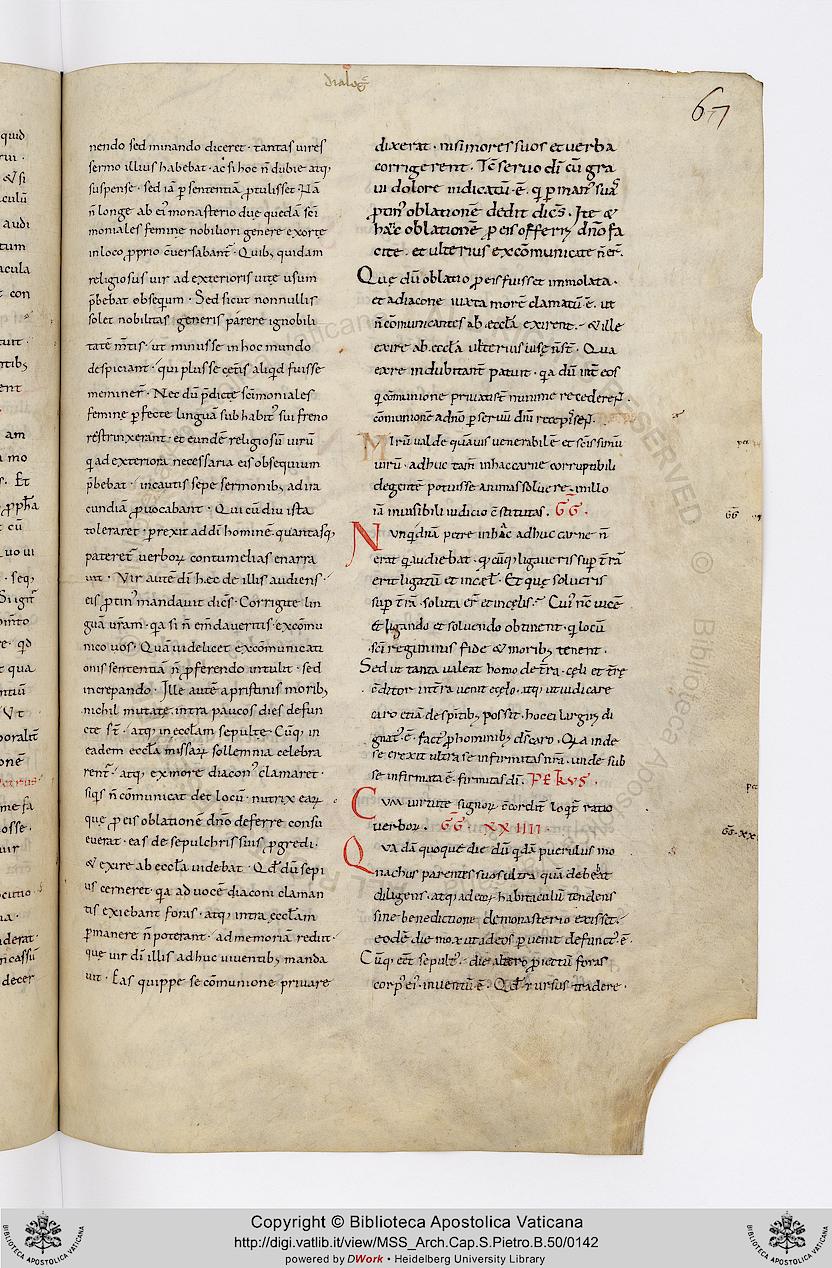 dialoḡ
67
nendo sed minando diceret · tantas uires
sermo illius habebat · ac si hoc ñ dubie atq;
suspense · sed iã p sententiã ptulisset · Nã
ñ longe ab ei' monasterio due quedã sci
moniales femine nobiliori genere exorte
in loco pprio c̄uersabant̄ · Quib; quidam
religiosus uir ad exterioris uite usum
p̄bebat obsequm̄ · Sed sicut nonnullis
solet nobilitas generis parere ignobili
tatē m̄tis · ut minus se in hoc mundo
despiciant · qui plus se cet̄is aliqd fuisse
meminer̄ · Nec dū p̄dicte sc̄imoniales
femine pfecte linguā sub habit' sui freno
restrinxerant · et eundē religiosū uirū
q ad exteriora necessaria eis obsequium
p̄bebat · incautis sepe sermonib; ad ira
cundiā puocabant · Qui cū diu ista
toleraret · prexit ad dī hominē · quantasq;
pateret̄ uerbor̄ contumelias enarra
uit · Vir autē dī hęc de illis audiens ·
eis ptin' mandauit dic̄s · Corrigite lin
guā ur̄am · qa si ñ em̄daueritis · excōmu
nico uos · Quā uidelicet excōmunicati
onis sententiā ñ pferendo intulit · sed
increpando · Ille autē a pristinis morib;
nichil mutatę · intra paucos dies defun
cte st̄ · atq; in eccl̄am sepulte · Cūq; in
eadem eccl̄a missar̄ sollemnia celebra
rent̄ · atq; ex more diacon' clamaret ·
siqs ñ cōmunicat det locū · nutrix ear̄
que p eis oblationē dn̄o deferre consu
euerat · eas de sepulchris suis pgredi ·
& exire ab eccl̄a uidebat · Qd dū sepi
us cerneret · qa ad uocē diaconi claman
tis exiebant foras · atq; intra eccl̄am
pmanere ñ poterant · ad memoriā rediit ·
que uir dī illis adhuc uiuentib; manda
uit · Eas quippe se cōmunione priuare
dixerat · nisi mores suos et uerba
corrigerent · Tc̄ seruo dī cū gra
ui dolore indicatū · ē · q p man' suā
ptin' oblationē dedit dic̄s · Ite &
hāc oblationē p eis offerri dn̄o fa
cite · et ulterius excōmunicate ñ er̄ ·
Quę dū oblatio p eis fuisset immolata ·
et a diacone iuxta morē clamatū ē · ut
ñ cōmunicantes ab eccl̄a exirent · & ille
exire ab eccl̄a ulterius uise ñ st̄ · Qua
ex re indubitant̄ patuit · qa dū int̄ eos
q cōmunione priuati st̄ minime recederent̄ ·
cōmunionē a dn̄o p seruū dn̄i recepisset̄ ·
Mirū ualde quāuis uenerabilē et sc̄issimū
uirū · adhuc tam̄ in hac carne corruptibili
degentē potuisse animas soluere · in illo
iā inuisibili iudicio c̄stitutas · G̅G̅ ·
Nunqdnā petre in hac adhuc carne ñ
erat q audiebat · qcūq; ligaueris sup t̄rā
erit ligatū et in cęl̄ · Et quę solueris
sup t̄rā · soluta er̄t et in cęlis · Cui' nc̄ uicē
et ligando et soluendo obtinent · q locū
sc̄i regiminis fide & morib; tenent ·
Sed ut tanta ualeat homo de t̄ra · cęli et t̄rę
c̄ditor in t̄ra uenit e cęlo · atq; ut iudicare
caro etiā de sp̄itib; possit · hoc ei largiri di
gnat' · ē · fact' p hominib; ds̄ caro · Qa inde
surrexit ultra se infirmitas nr̄a · unde sub
se infirmata ē · firmitas dī · PETRVS ·
Cum uirtute signor̄ c̄cordit̄ loqt̄ ratio
uerbor̄ · G̅G̅ · XXIIII ·
Quadā quoque die dū qdā puerulus mo
nachus parentes suos ultra quā deberet
diligens · atq; ad eor̄ habitaculū tendens
sine benedictione de monasterio exisset ·
eodē die mox ut ad eos puenit defunct' ē ·
Cūq; eēt sepult' · die altero piectū foras
corp' ei' · inuentū ē · Qd rursus tradere ·
Copyright © Biblioteca Apostolica Vaticana
http://digi.vatlib.it/view/MSS_Arch.Cap.S.Pietro.B.50/0142
powered by DWork • Heidelberg University Library